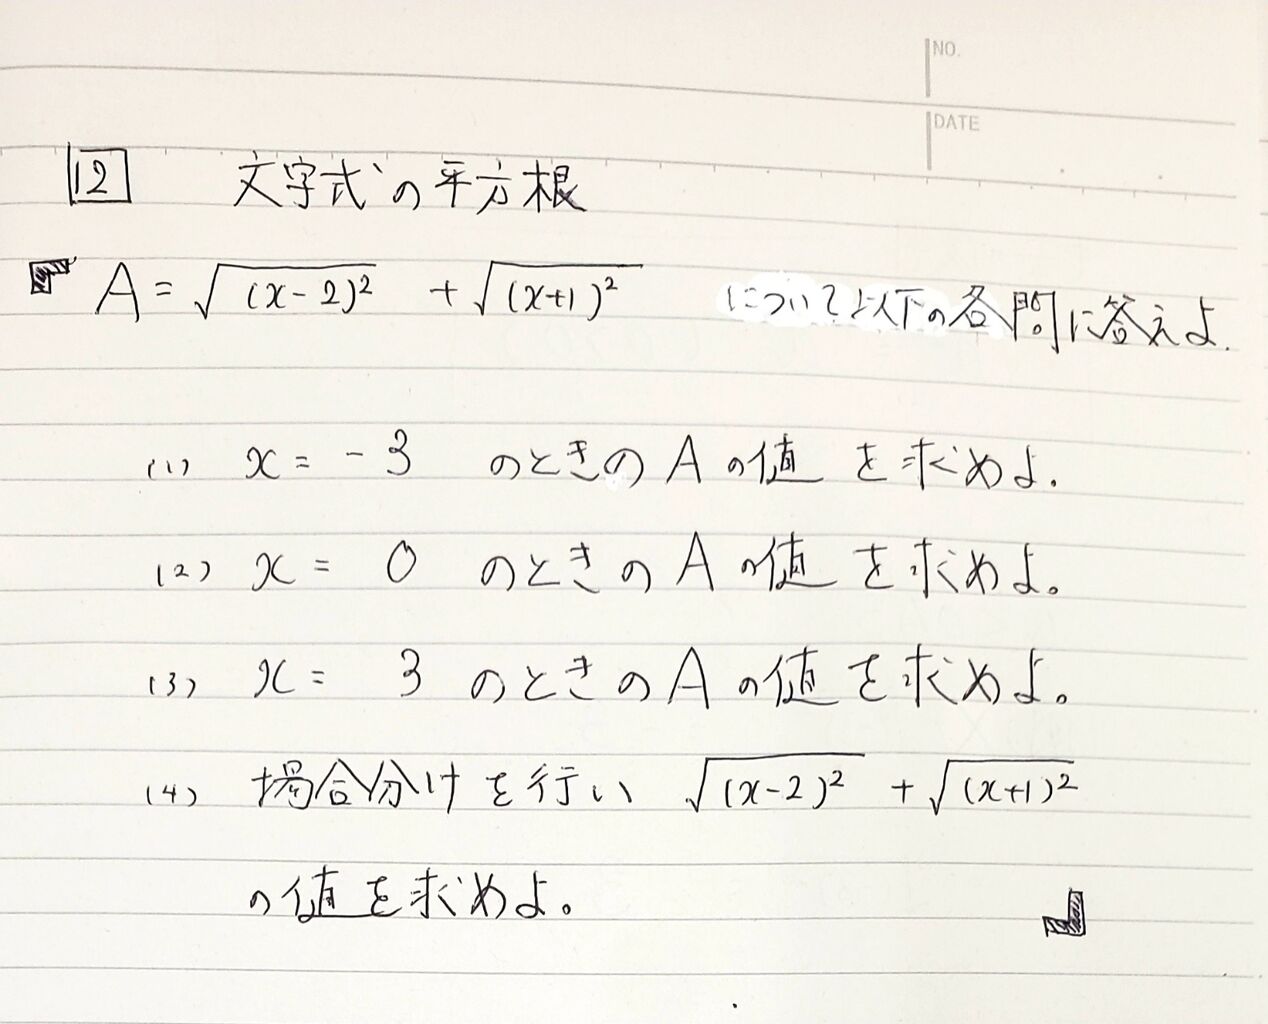 NO.
DATE
12 文字式の平方根
「A = √(x-2)² + √(x+1)² について以下の各問に答えよ.
(1) x = -3 のときの A の値 を求めよ.
(2) x = 0 のときの A の値 を求めよ。
(3) x = 3 のときの A の値 を求めよ。
(4) 場合分けを行い √(x-2)² + √(x+1)²
の値を求めよ。 」